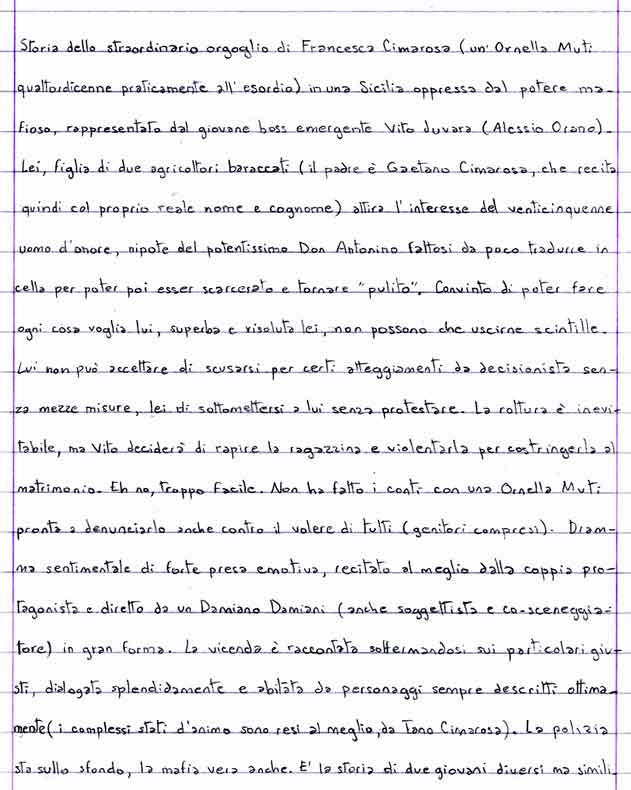 Storia dello straordinario orgoglio di Francesca Cimarosa (un' Ornella Muti
quattordicenne praticamente all' esordio) in una Sicilia oppressa dal potere ma-
fioso, rappresentato dal giovane boss emergente Vito Juvara (Alessio Orano).
Lei, figlia di due agricoltori baraccati (il padre è Gaetano Cimarosa, che recita
quindi col proprio reale nome e cognome) attira l'interesse del venticinquenne
uomo d'onore, nipote del potentissimo Don Antonino fattosi da poco tradurre in
cella per poter poi esser scarcerato e tornare "pulito". Convinto di poter fare
ogni cosa voglia lui, superba e risoluta lei, non possono che uscirne scintille.
Lui non può accettare di scusarsi per certi atteggiamenti da decisionista sen-
za mezze misure, lei di sottomettersi a lui senza protestare. La rottura è inevi-
tabile, ma Vito deciderà di rapire la ragazzina e violentarla per costringerla al
matrimonio. Eh no, troppo facile. Non ha fatto i conti con una Ornella Muti
pronta a denunciarlo anche contro il volere di tutti (genitori compresi). Dram-
ma sentimentale di forte presa emotiva, recitato al meglio dalla coppia pro-
tagonista e diretto da un Damiano Damiani (anche soggettista e co-sceneggia-
tore) in gran forma. La vicenda è raccontata soffermandosi sui particolari giu-
sti, dialogata splendidamente e abitata da personaggi sempre descritti ottima-
mente (i complessi stati d'animo sono resi al meglio, da Tano Cimarosa). La polizia
sta sullo sfondo, la mafia vera anche. E' la storia di due giovani diversi ma simili.